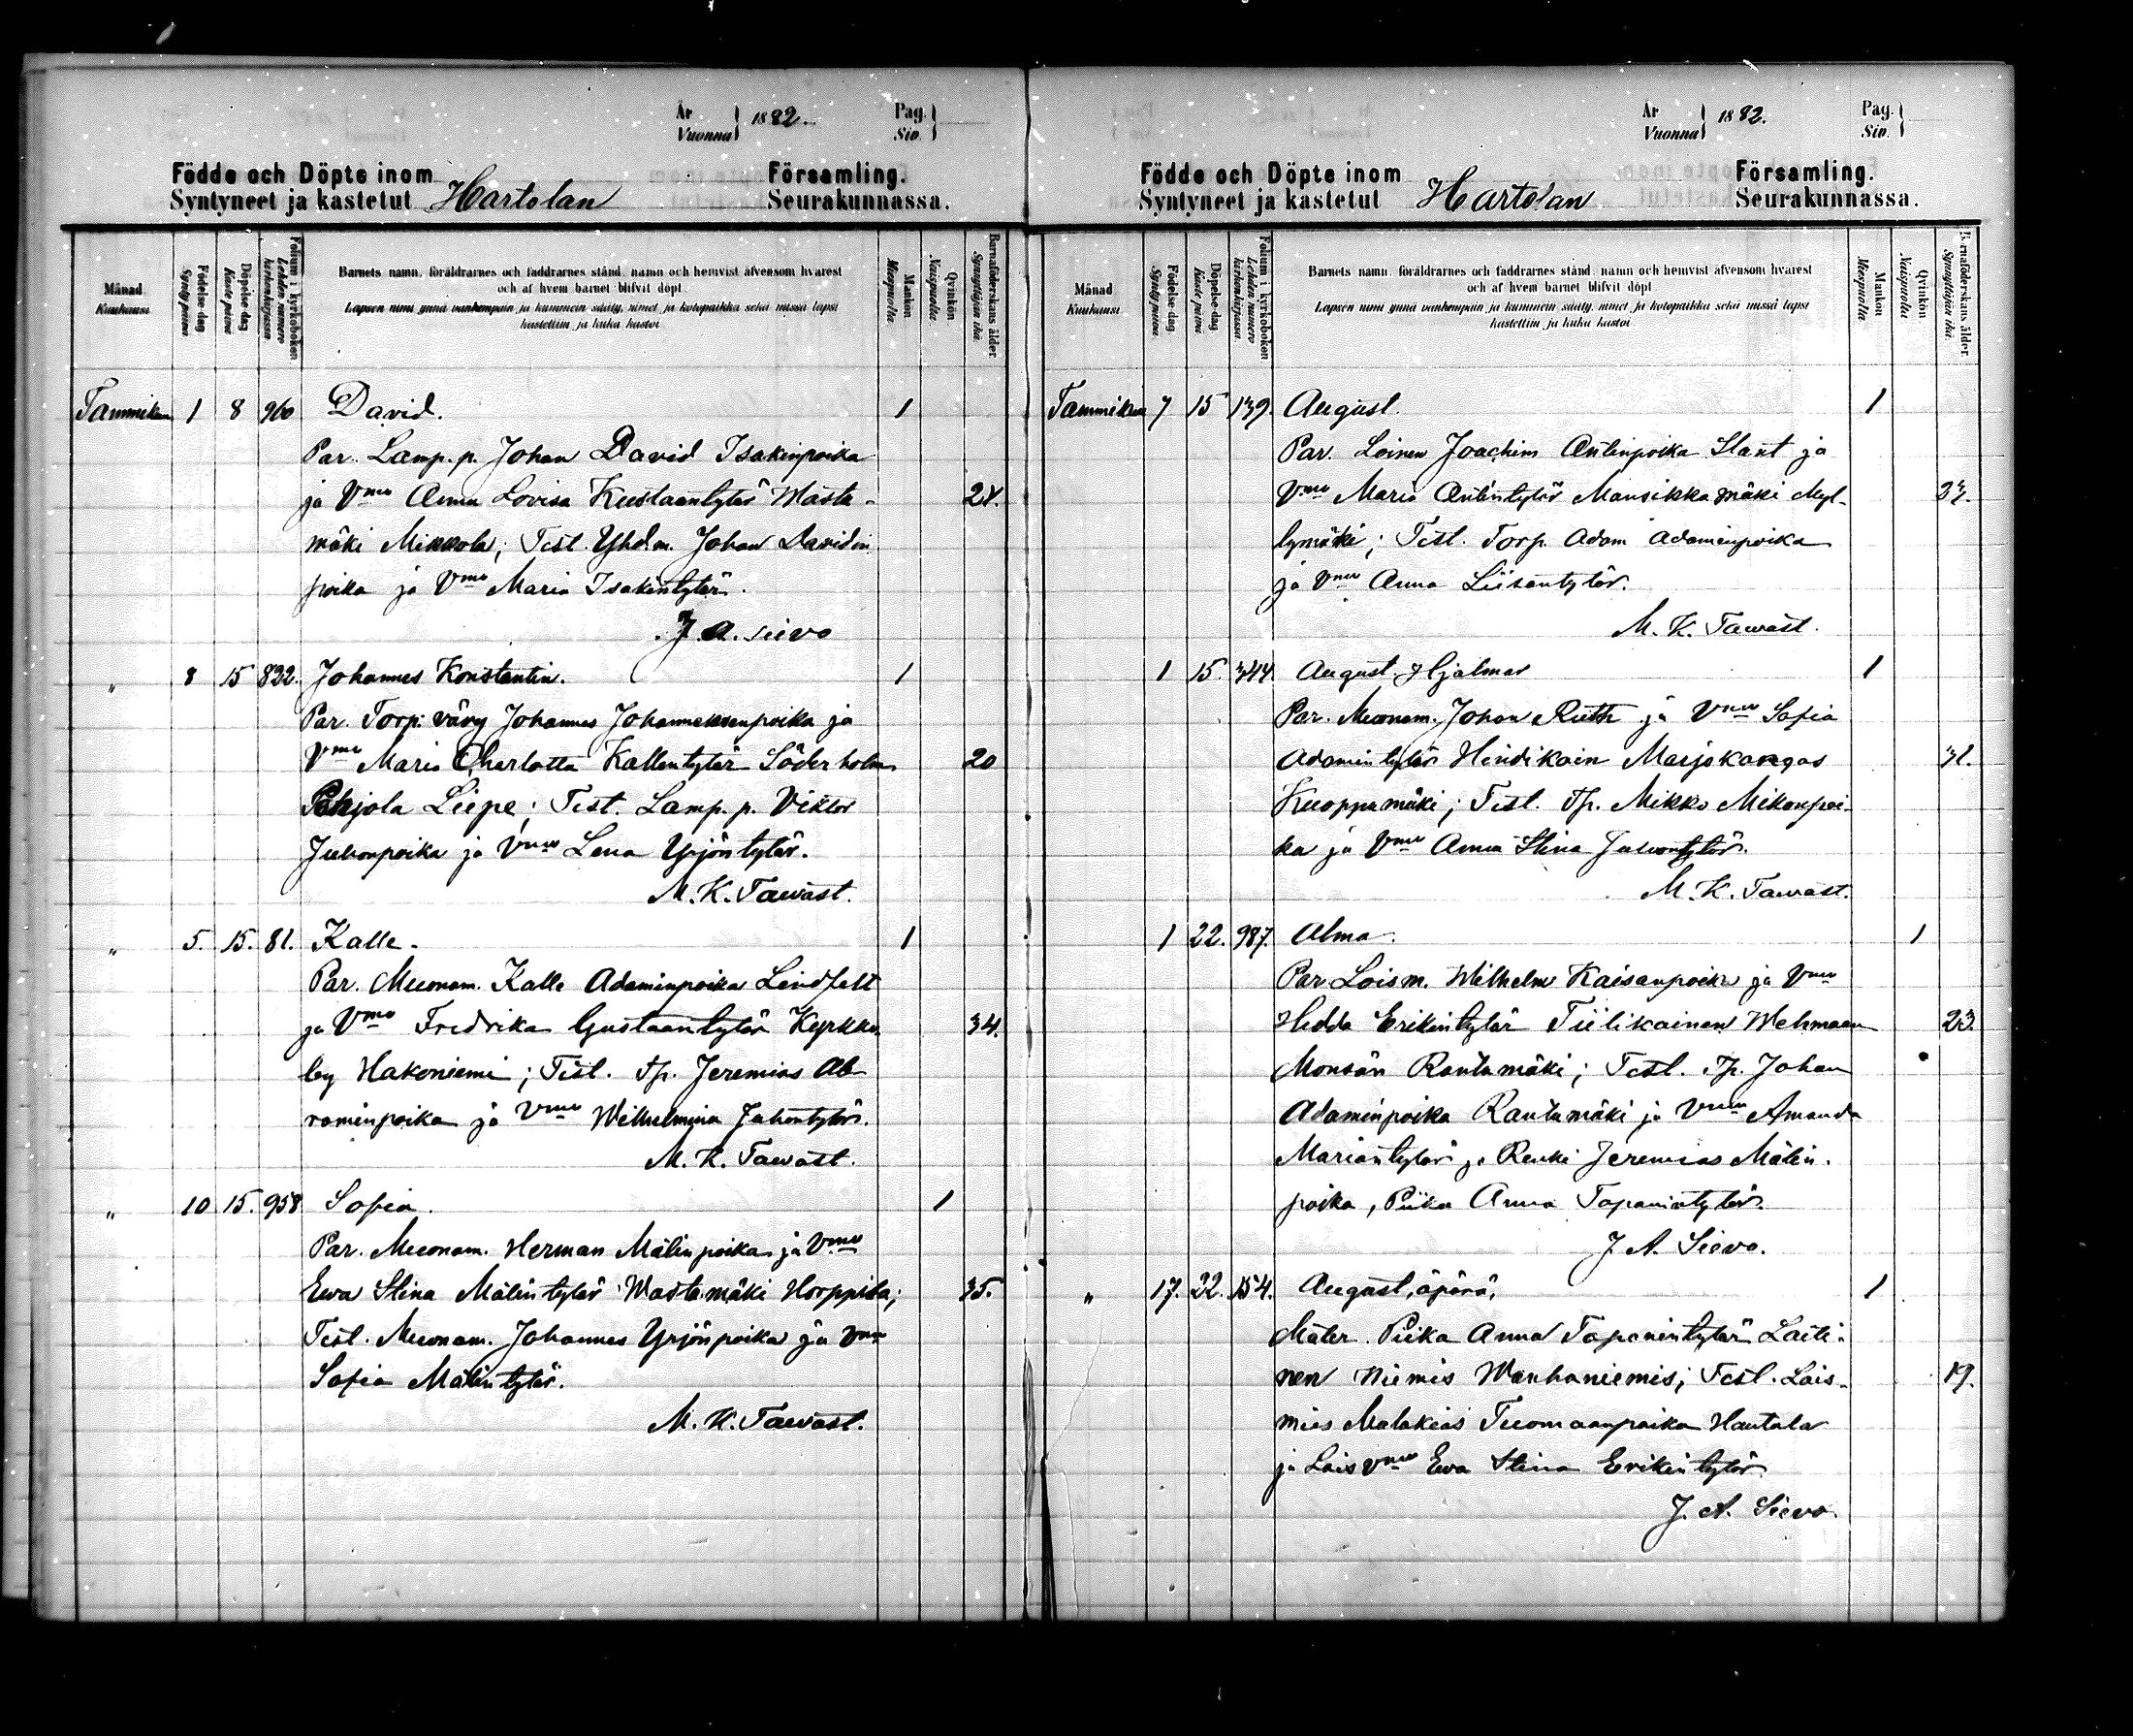 År
Vuonna 1882.
Pag.
Siv.
Födde och Döpte inom Församling.
Syntyneet ja kastetut Hartolan Seurakunnassa.
Månad
Kuukausi
Födelse-dag
Synty päivä
Döpelse-dag
Kaste päivä
Folium i kyrkoboken
Lehden numero kirkonkirjassa
Barnets namn, föräldrarnes och faddrarnes stånd, namn och hemvist äfvensom hvarest
och af hvem barnet blifvit döpt.
Lapsen nimi ynnä vanhempain ja kummein sääty, nimet ja kotopaikka sekä missä lapsi
kastettiin ja kuka kastoi
Mankön
Miespuolia
Qvinkön
Naispuolia
Barnaföderskans ålder.
Synnyttäjän ikä.
Tammikuu 1 8 960 David. 1
Par. Lamp. p. Johan David Isakinpoika
ja Vmo Anna Lovisa Kustaantytär Wasta- 24.
mäki Mikkola; Test. Yhd.m. Johan Davidin
poika ja Vmo Maria Isakintytär.
J. A. Sievo
" 8 15 822. Johannes Konstantin. 1
Par. Torp. vävy Johannes Johanneksenpoika ja
Vmo Maria Charlotta Kallentytär Söderholm 20
Pohjola Liepe; Test. Lamp. p. Viktor
Juhonpoika ja Vmo Lena Yrjöntytär.
M. K. Tawast.
" 5. 15. 81. Kalle. 1
Par. Muonam. Kalle Adaminpoika Lindfelt
ja Vmo Fredrika Gustaantytär Kyrkko- 34.
by Hakoniemi; Test. Tp. Jeremias Ab-
raminpoika ja Vmo Wilhelmina Juhontytär.
M. K. Tawast.
" 10 15. 958 Sofia. 1
Par. Muonam. Herman Mätinpoika ja Vmo
Ewa Stina Mätintytär Wastamäki Horppila; 35.
Test. Muonam. Johannes Yrjönpoika ja Vmo
Sofia Mätintytär.
M. K. Tawast.
År
Vuonna 1882.
Pag.
Siv.
Födde och Döpte inom Församling.
Syntyneet ja kastetut Hartolan Seurakunnassa.
Månad
Kuukausi
Födelse-dag
Synty päivä
Döpelse-dag
Kaste päivä
Folium i kyrkoboken
Lehden numero kirkonkirjassa.
Barnets namn, föräldrarnes och faddrarnes stånd, namn och hemvist äfvensom hvarest
och af hvem barnet blifvit döpt.
Lapsen nimi ynnä vanhempain ja kummein sääty, nimet ja kotopaikka sekä missä lapsi
kastettiin ja kuka kastoi
Mankön
Miespuolia
Qvinkön
Naispuolia
Barnaföderskans ålder.
Synnyttäjän ikä.
Tammikuu 7 15 139. August. 1
Par. Loinen Joachim Antinpoika Slant ja
Vmo Maria Antintytär Mansikkamäki Myl-
lymäki; Test. Torp. Adam Adaminpoika
ja Vmo Anna Liisantytär.
M. K. Tawast.
1 15. 344. August Hjalmar 1
Par. Muonam. Johan Ruth ja Vmo Sofia
Adamintytär Hindikain Marjokangas 31.
Kuoppamäki; Test. Tp. Mikko Mikonpoi-
ka ja Vmo Anna Stina Juhontytär.
M. K. Tawast.
1 22. 987. Alma. 1
Par. Loism. Wilhelm Kaisanpoika ja Vmo
Hedda Erikintytär Tiilikainen Wehmaan 23.
Monsän Rautamäki; Test. Tp. Johan
Adaminpoika Rautamäki ja Vmo Amanda
Mariantytär ja Renki Jeremias Mätin-
poika, Piika Anna Tapanintytär.
J. A. Sievo.
" 17. 22. 154. August, äpärä, 1
Mater. Piika Anna Tapanintytär Laiti-
nen Niemis Wanhaniemis; Test. Lois- 19.
mies Malakias Tuomaanpoika Hautala
ja Lois Vmo Ewa Stina Erikintytär
J. A. Sievo.